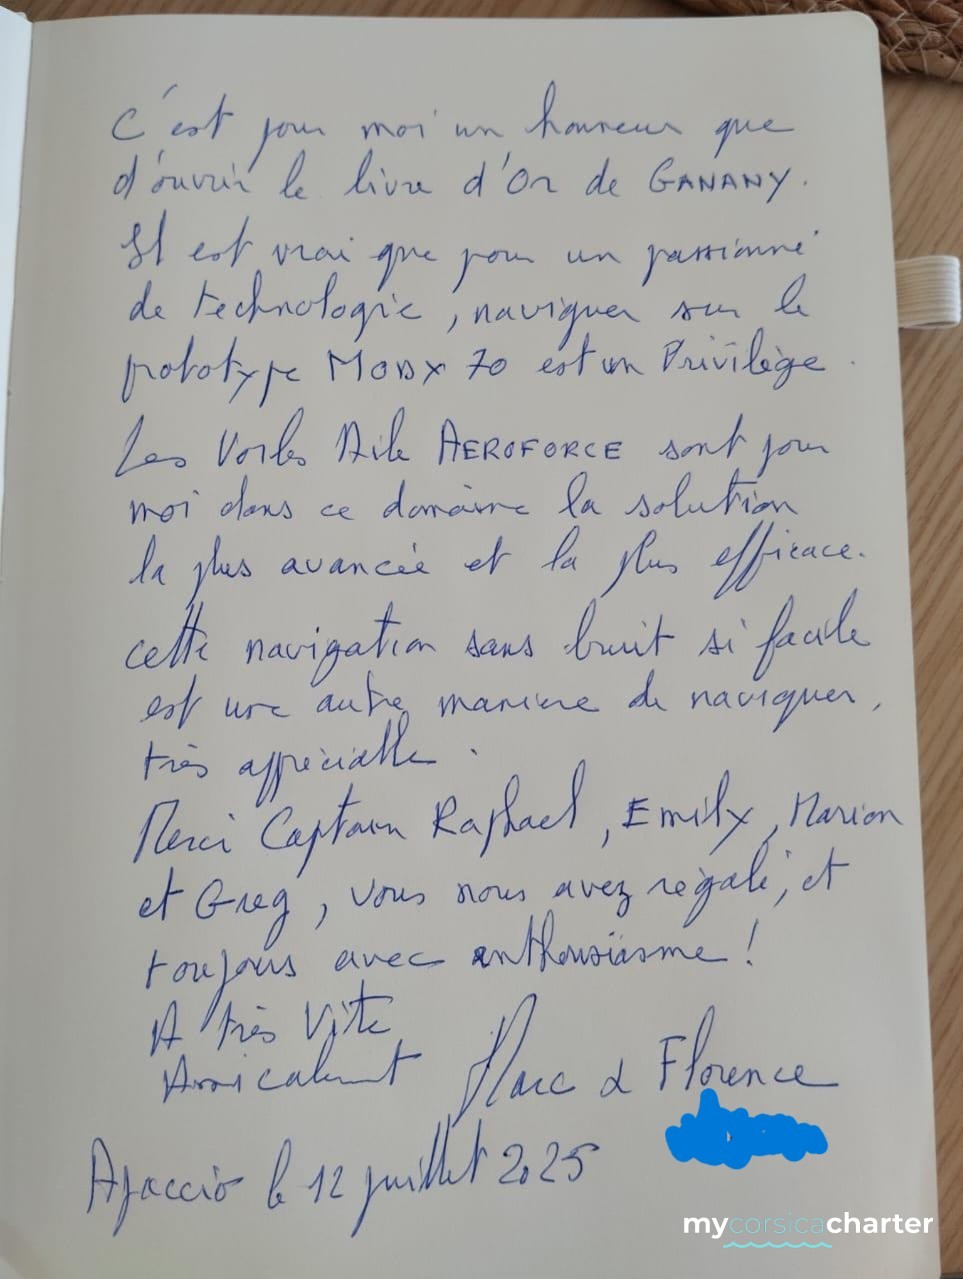 C'est pour moi un honneur que
d'ouvrir le livre d'Or de GANANY.
Il est vrai que pour un passionné
de technologie, naviguer sur le
prototype MODX 70 est un Privilège.
Les Voiles Aile AEROFORCE sont pour
moi dans ce domaine la solution
la plus avancée et la plus efficace.
cette navigation sans bruit si facile
est une autre manière de naviguer,
très appréciable.
Merci Captain Raphael, Emily, Marion
et Greg, vous nous avez régalé, et
toujours avec enthousiasme !
A très Vite
Amicalement Marc & Florence
Ajaccio le 12 juillet 2025
mycorsicacharter